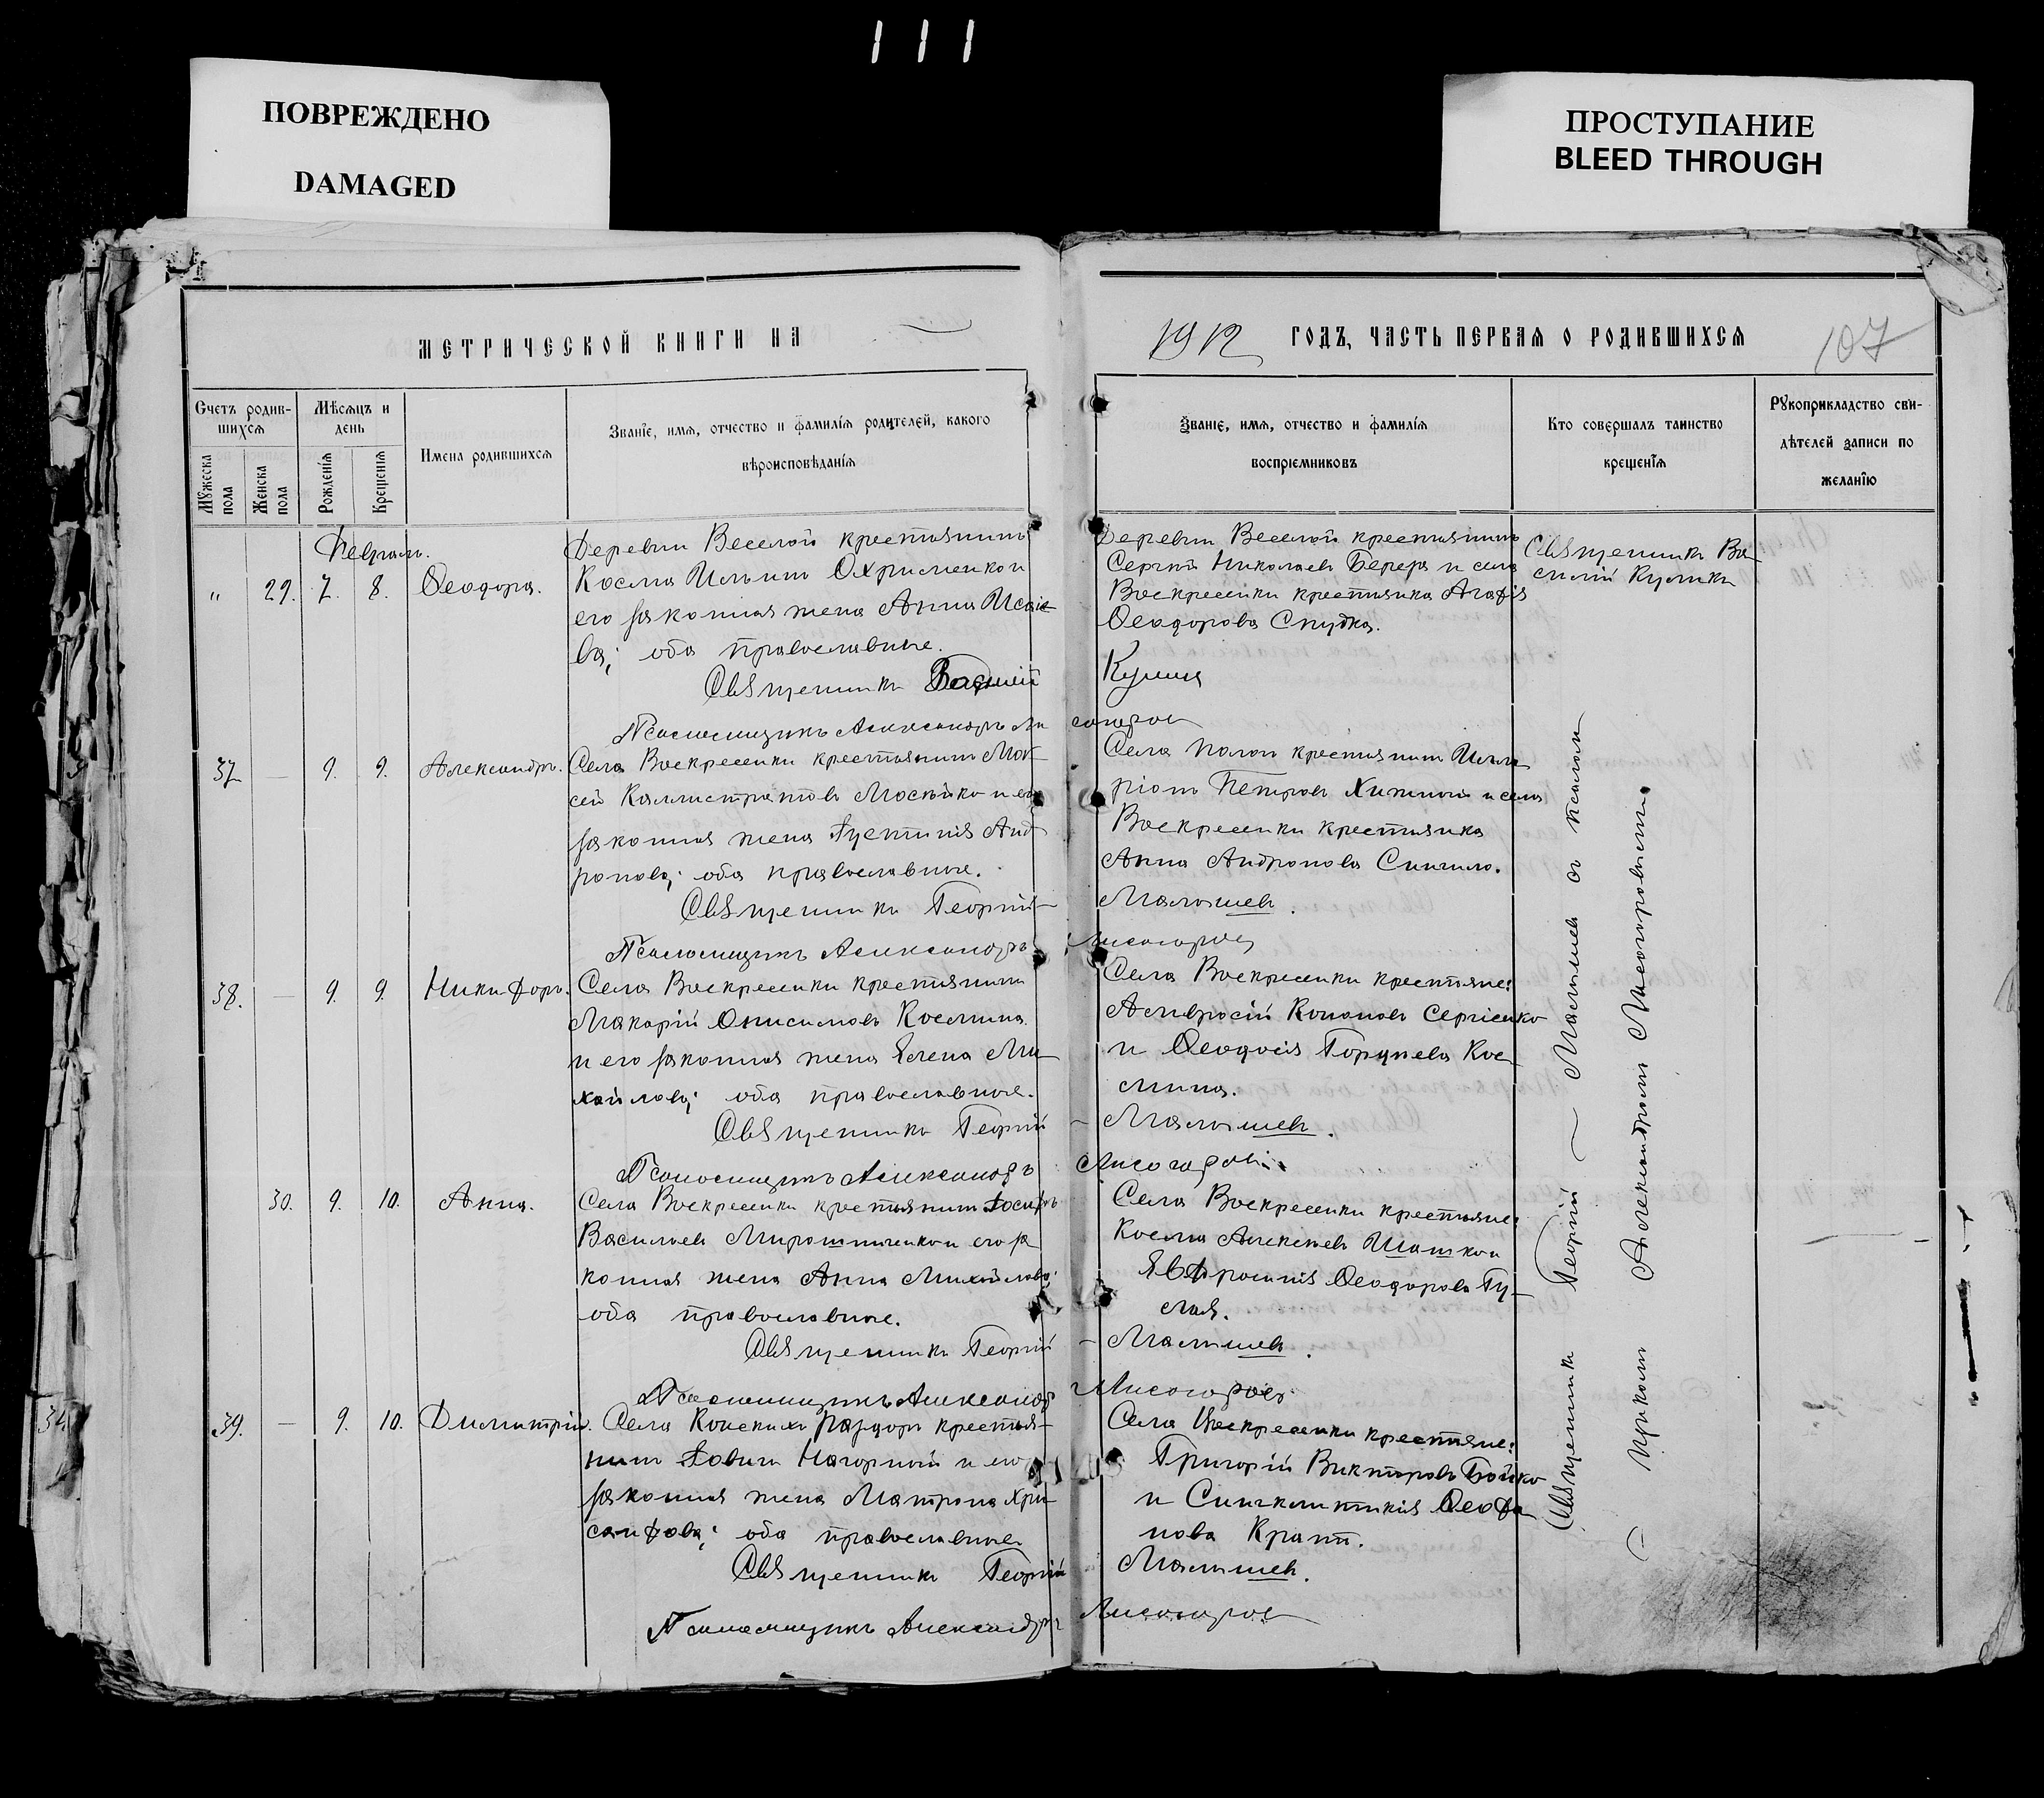 111
ПОВРЕЖДЕНО
DAMAGED
ПРОСТУПАНИЕ
BLEED THROUGH
МЕТРИЧЕСКОЙ КНИГИ НА
1912 ГОДЪ, ЧАСТЬ ПЕРВАЯ О РОДИВШИХСЯ
107
Счетъ родив-
шихся
Мѣсяцъ и
день
Мужеска
пола
Женска
пола
Рожденія
Крещенія
Имена родившихся
Званіе, имя, отчество и фамилія родителей, какого
вѣроисповѣданія
Званіе, имя, отчество и фамилія
воспріемниковъ
Кто совершалъ таинство
крещенія
Рукоприкладство сви-
дѣтелей записи по
желанію
Февраль.
„ 29. 7. 8. Ѳеодора.
Деревни Веселой крестьянинъ
Косма Ильинъ Охрименко и
его законная жена Анна Исаіе-
ва; оба православные.
Священникъ Василій
Псаломщикъ Александръ Ли
Деревни Веселой крестьянинъ
Сергій Николаевъ Берега и села
Воскресенки крестьянка Агафія
Ѳеодорова Снудка.
Кулика
согоров
Священникъ Ва-
силій Кулика
37 — 9. 9. Александръ.
Села Воскресенки крестьянинъ Мок-
сей Каллистратовъ Мосѣйко и его
законная жена Іустинія Анд-
ронова; оба православные.
Священникъ Георгій —
Псаломщикъ Александръ
Села Пологи крестьянинъ Илла-
ріонъ Петровъ Хижній и села
Воскресенки крестьянка
Анна Андронова Сингило.
Малышевъ.
Лисогоров
38. — 9. 9. Никифоръ.
Села Воскресенки крестьянинъ
Макарій Онисимовъ Космина
и его законная жена Елена Ми-
хайлова; оба православные.
Священникъ Георгій
Псаломщикъ Александръ
Села Воскресенки крестьяне:
Амвросій Кононовъ Сергіенко
и Ѳеодосія Гордѣева Кос-
мина.
— Малышевъ.
Лисогоров
30. 9. 10. Анна.
Села Воскресенки крестьянинъ Іосифъ
Васильевъ Мирошниченко и его за-
конная жена Анна Михайлова;
оба православные.
Священникъ Георгій
Псаломщикъ Александр
Села Воскресенки крестьяне:
Косма Алексѣевъ Шашко и
Евфросинія Ѳеодорова Гу-
лая.
— Малышевъ.
Лисогоров
34
39. — 9. 10. Димитрій.
Села Конскихъ Раздоръ крестья-
нинъ Іовинъ Нагорный и его
законная жена Матрона Хри-
санфова; оба православные
Священникъ Георгій
Псаломщикъ Александръ
Села Воскресенки крестьяне:
Григорій Викторовъ Бойко
и Синклитикія Ѳеофа-
нова Кратт.
Малышевъ.
Лисогоров
Священникъ Георгій — Малышевъ съ псалом-
— щикомъ Александромъ Лисогоровымъ.